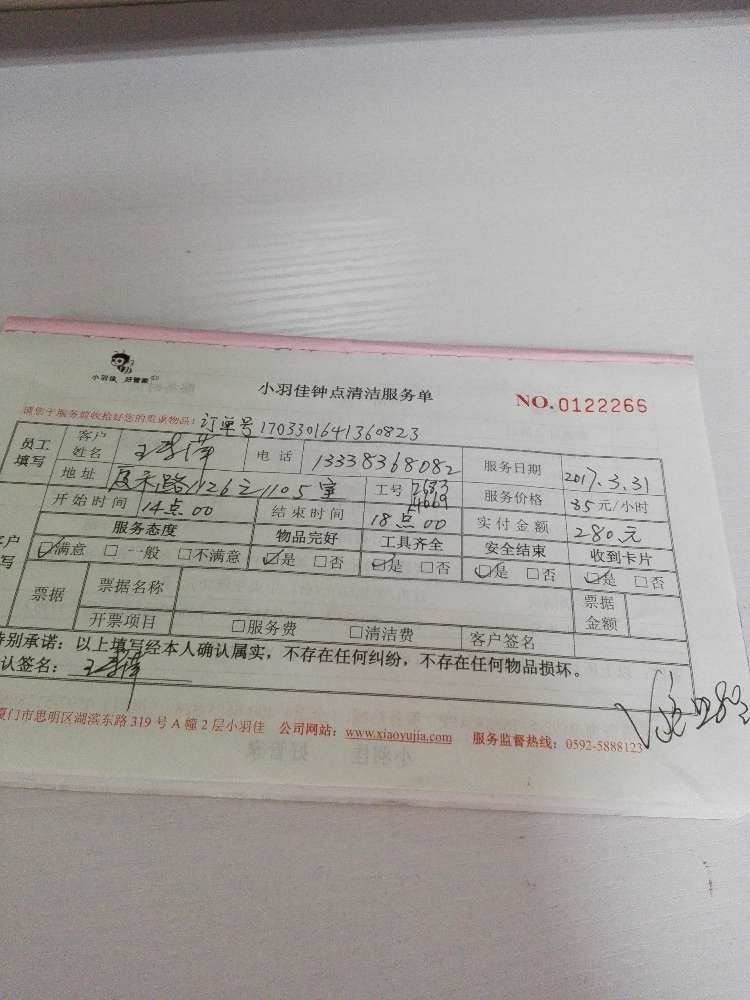 小羽佳 好管家
小羽佳钟点清洁服务单
NO.0122266
请您于服务前收拾好您的贵重物品!
订单号1703301641360823
员工填写
客户姓名
电话 13338368082
服务日期 2017.3.31
地址 1126之1105室
工号 2683 4669
服务价格 35元/小时
开始时间 14点00
结束时间 18点00
实付金额 280元
服务态度 物品完好 工具齐全 安全结束 收到卡片
☑满意 □一般 □不满意 ☑是 □否 ☑是 □否 ☑是 □否 ☑是 □否
票据 票据名称 票据金额
开票项目 □服务费 □清洁费 客户签名
别承诺:以上填写经本人确认属实,不存在任何纠纷,不存在任何物品损坏。
认签名:
厦门市思明区湖滨东路319号A幢2层小羽佳 公司网站:www.xiaoyujia.com 服务监督热线:0592-5888123